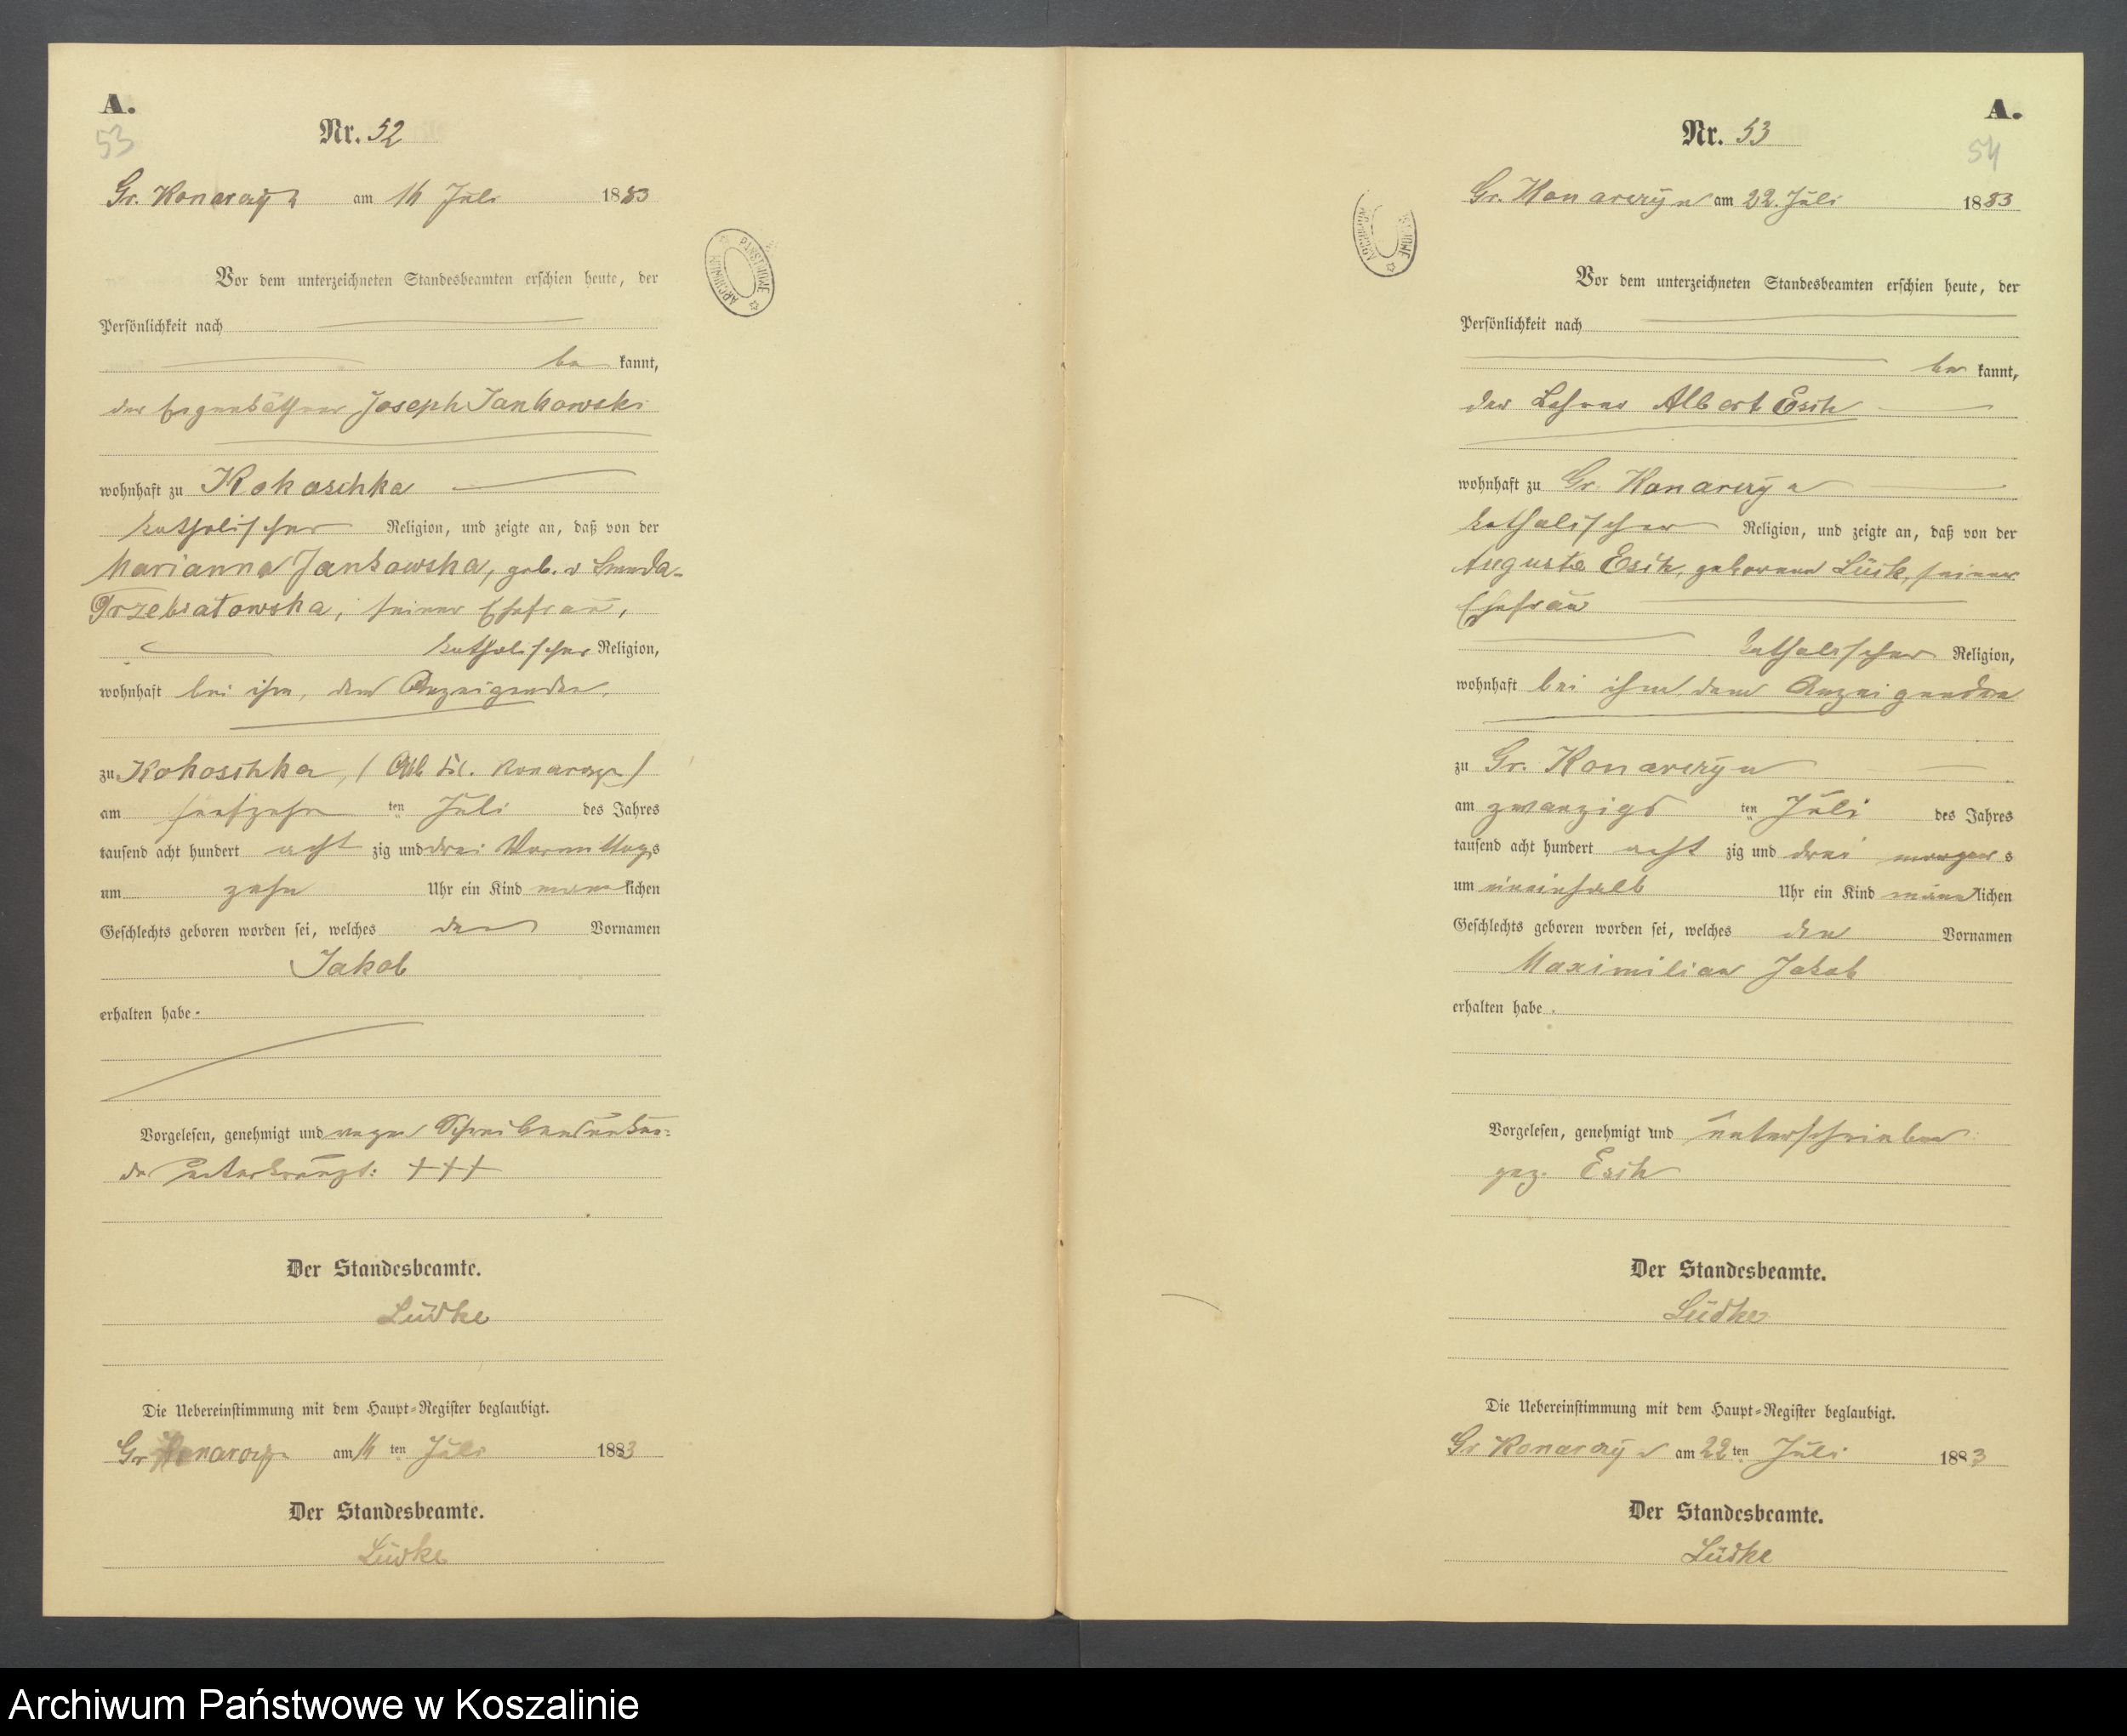 A.
53
Nr. 52
Gr. Konarczyn am 16 Juli 1883
Vor dem unterzeichneten Standesbeamten erschien heute, der
Persönlichkeit nach
be kannt,
der Eigenkäthner Joseph Jankowski
wohnhaft zu Kokoschka
katholischer Religion, und zeigte an, daß von der
Marianna Jankowska, geb. v
Trzebiatowska, seiner Ehefrau,
katholischer Religion,
wohnhaft bei ihm, dem Anzeigenden,
zu Kokoschka, / Konarczyn /
am fünfzehn ten Juli des Jahres
tausend acht hundert acht zig und drei Vormittags
um zehn Uhr ein Kind männlichen
Geschlechts geboren worden sei, welches den Vornamen
Jakob
erhalten habe.
Vorgelesen, genehmigt und wegen Schreibensunkun-
de unterkreuzt: +++
Der Standesbeamte.
Lüdke
Die Uebereinstimmung mit dem Haupt-Register beglaubigt.
Gr Konarczyn am 16 ten Juli 1883
Der Standesbeamte.
Lüdke
ARCHIWUM PAŃSTWOWE
A.
54
Nr. 53
Gr. Konarczyn am 22. Juli 1883
Vor dem unterzeichneten Standesbeamten erschien heute, der
Persönlichkeit nach
be kannt,
der Lehrer Albert Esch
wohnhaft zu Gr. Konarczyn
katholischer Religion, und zeigte an, daß von der
Auguste Esch, geborene Lück, seiner
Ehefrau
katholischer Religion,
wohnhaft bei ihm dem Anzeigenden
zu Gr. Konarczyn
am zwanzigs ten Juli des Jahres
tausend acht hundert acht zig und drei morgens
um eineinhalb Uhr ein Kind männlichen
Geschlechts geboren worden sei, welches den Vornamen
Maximilian Jakob
erhalten habe.
Vorgelesen, genehmigt und unterschrieben
gez. Esch
Der Standesbeamte.
Lüdke
Die Uebereinstimmung mit dem Haupt-Register beglaubigt.
Gr Konarczyn am 22 ten Juli 1883
Der Standesbeamte.
Lüdke
Archiwum Państwowe w Koszalinie